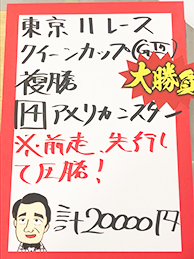 東京11レース
クイーンカップ(GⅢ)
複勝
大勝負
14 アメリカンスター
※前走、先行し
て圧勝!
計20000円